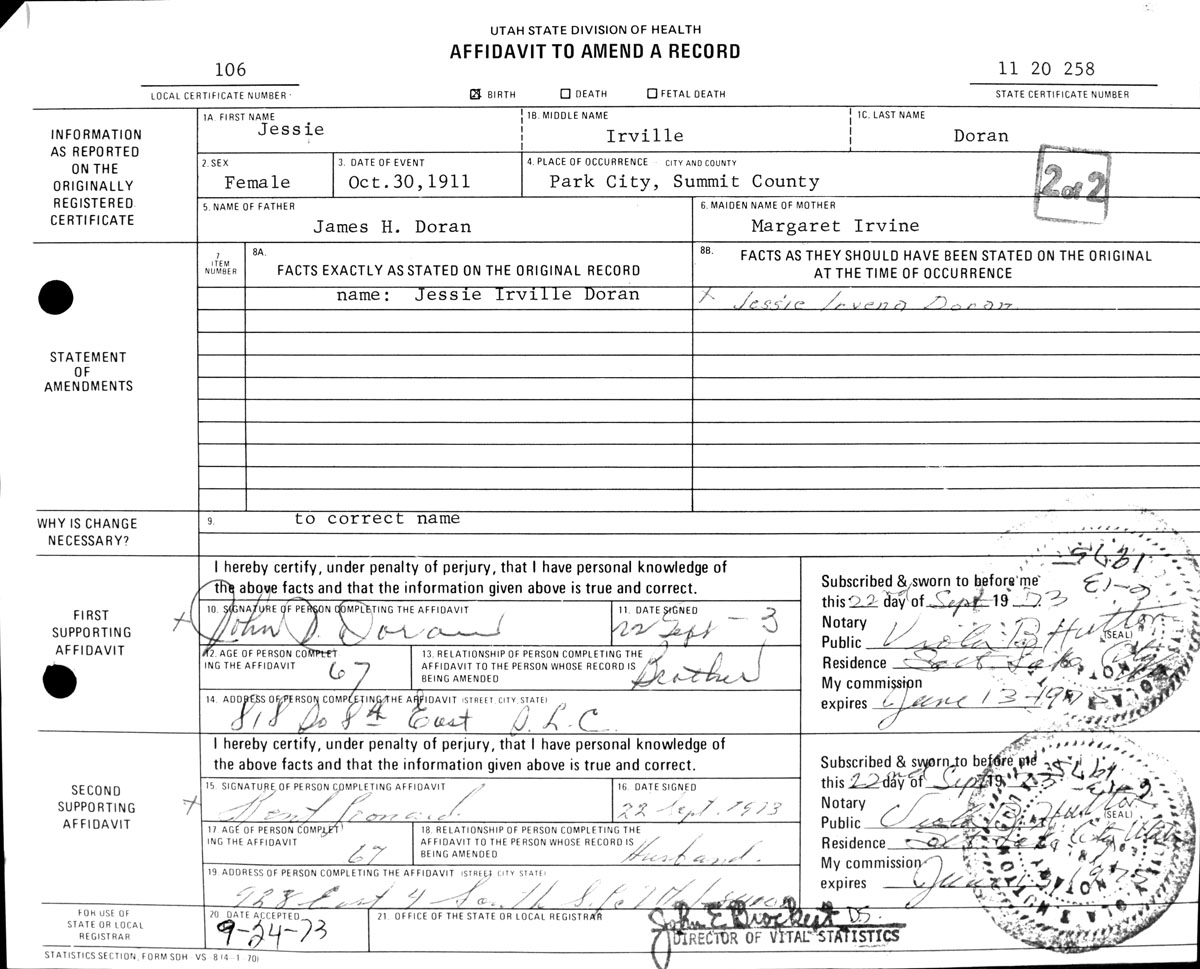 UTAH STATE DIVISION OF HEALTH
AFFIDAVIT TO AMEND A RECORD
106
11 20 258
LOCAL CERTIFICATE NUMBER
BIRTH DEATH FETAL DEATH
STATE CERTIFICATE NUMBER
INFORMATION
AS REPORTED
ON THE
ORIGINALLY
REGISTERED
CERTIFICATE
1A. FIRST NAME
Jessie
1B. MIDDLE NAME
Irville
1C. LAST NAME
Doran
2. SEX
Female
3. DATE OF EVENT
Oct.30,1911
4. PLACE OF OCCURRENCE - CITY AND COUNTY
Park City, Summit County
2 of 2
5. NAME OF FATHER
James H. Doran
6. MAIDEN NAME OF MOTHER
Margaret Irvine
STATEMENT
OF
AMENDMENTS
7
ITEM
NUMBER
8A.
FACTS EXACTLY AS STATED ON THE ORIGINAL RECORD
8B. FACTS AS THEY SHOULD HAVE BEEN STATED ON THE ORIGINAL
AT THE TIME OF OCCURRENCE
name: Jessie Irville Doran
x Jessie Irvena Doran
WHY IS CHANGE
NECESSARY?
9. to correct name
FIRST
SUPPORTING
AFFIDAVIT
I hereby certify, under penalty of perjury, that I have personal knowledge of
the above facts and that the information given above is true and correct.
10. SIGNATURE OF PERSON COMPLETING THE AFFIDAVIT
x John D. Doran
11. DATE SIGNED
22 Sept - 3
12. AGE OF PERSON COMPLET
ING THE AFFIDAVIT 67
13. RELATIONSHIP OF PERSON COMPLETING THE
AFFIDAVIT TO THE PERSON WHOSE RECORD IS
BEING AMENDED
Brother
14. ADDRESS OF PERSON COMPLETING THE AFFIDAVIT (STREET, CITY, STATE)
818 So 8th East S.L.C.
Subscribed & sworn to before me
this 22nd day of Sept 19 73
Notary
Public Viola B Hutton
(SEAL)
Residence Salt Lake City
My commission
expires June 13-1975
SECOND
SUPPORTING
AFFIDAVIT
I hereby certify, under penalty of perjury, that I have personal knowledge of
the above facts and that the information given above is true and correct.
15. SIGNATURE OF PERSON COMPLETING AFFIDAVIT
x Kent Leonard
16. DATE SIGNED
22 Sept. 1973
17 AGE OF PERSON COMPLET
ING THE AFFIDAVIT 67
18. RELATIONSHIP OF PERSON COMPLETING THE
AFFIDAVIT TO THE PERSON WHOSE RECORD IS
BEING AMENDED
Husband.
19. ADDRESS OF PERSON COMPLETING THE AFFIDAVIT (STREET, CITY, STATE)
928 East 4 South
Subscribed & sworn to before me
this 22nd day of Sept 19 73
Notary
Public Viola B. Hutton
(SEAL)
Residence Salt Lake City Utah
My commission
expires June 13-1975
FOR USE OF
STATE OR LOCAL
REGISTRAR
20. DATE ACCEPTED
9-24-73
21. OFFICE OF THE STATE OR LOCAL REGISTRAR
John E Brockert DS.
DIRECTOR OF VITAL STATISTICS
STATISTICS SECTION, FORM SDH - VS - 8 (4-1-70)